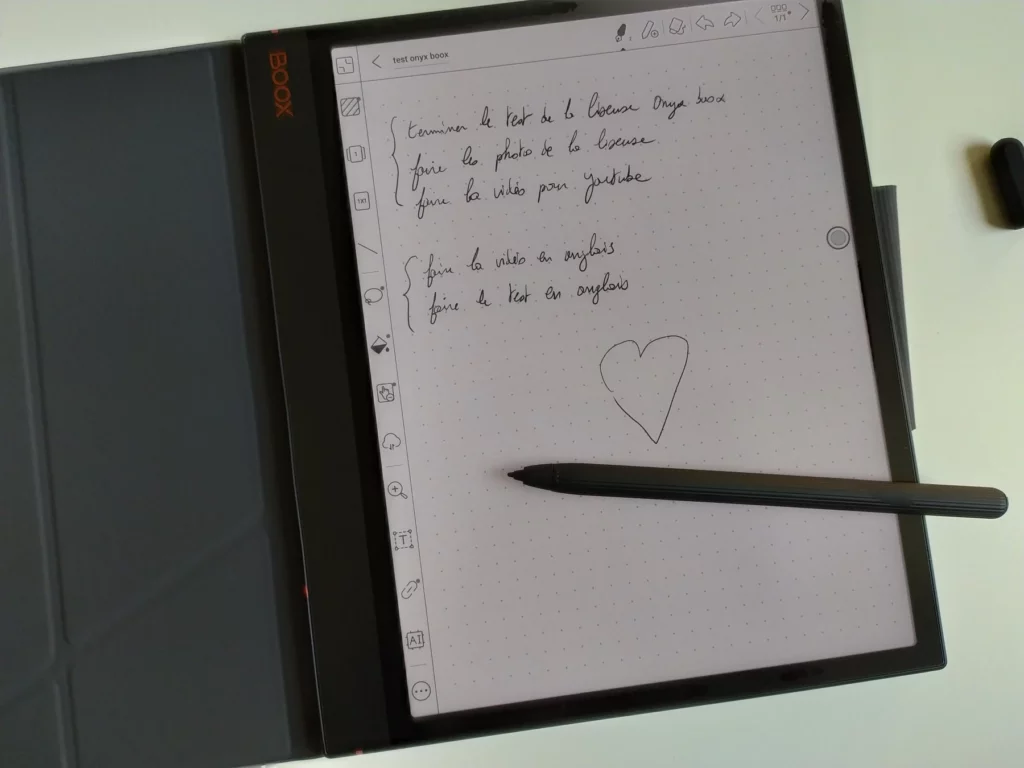 BOOX
test onyx boox
1/1
terminer le test de la liseuse Onyx boox
faire les photos de la liseuse.
faire la vidéo pour youtube
faire la vidéo en anglais
faire le test en anglais
T
AI